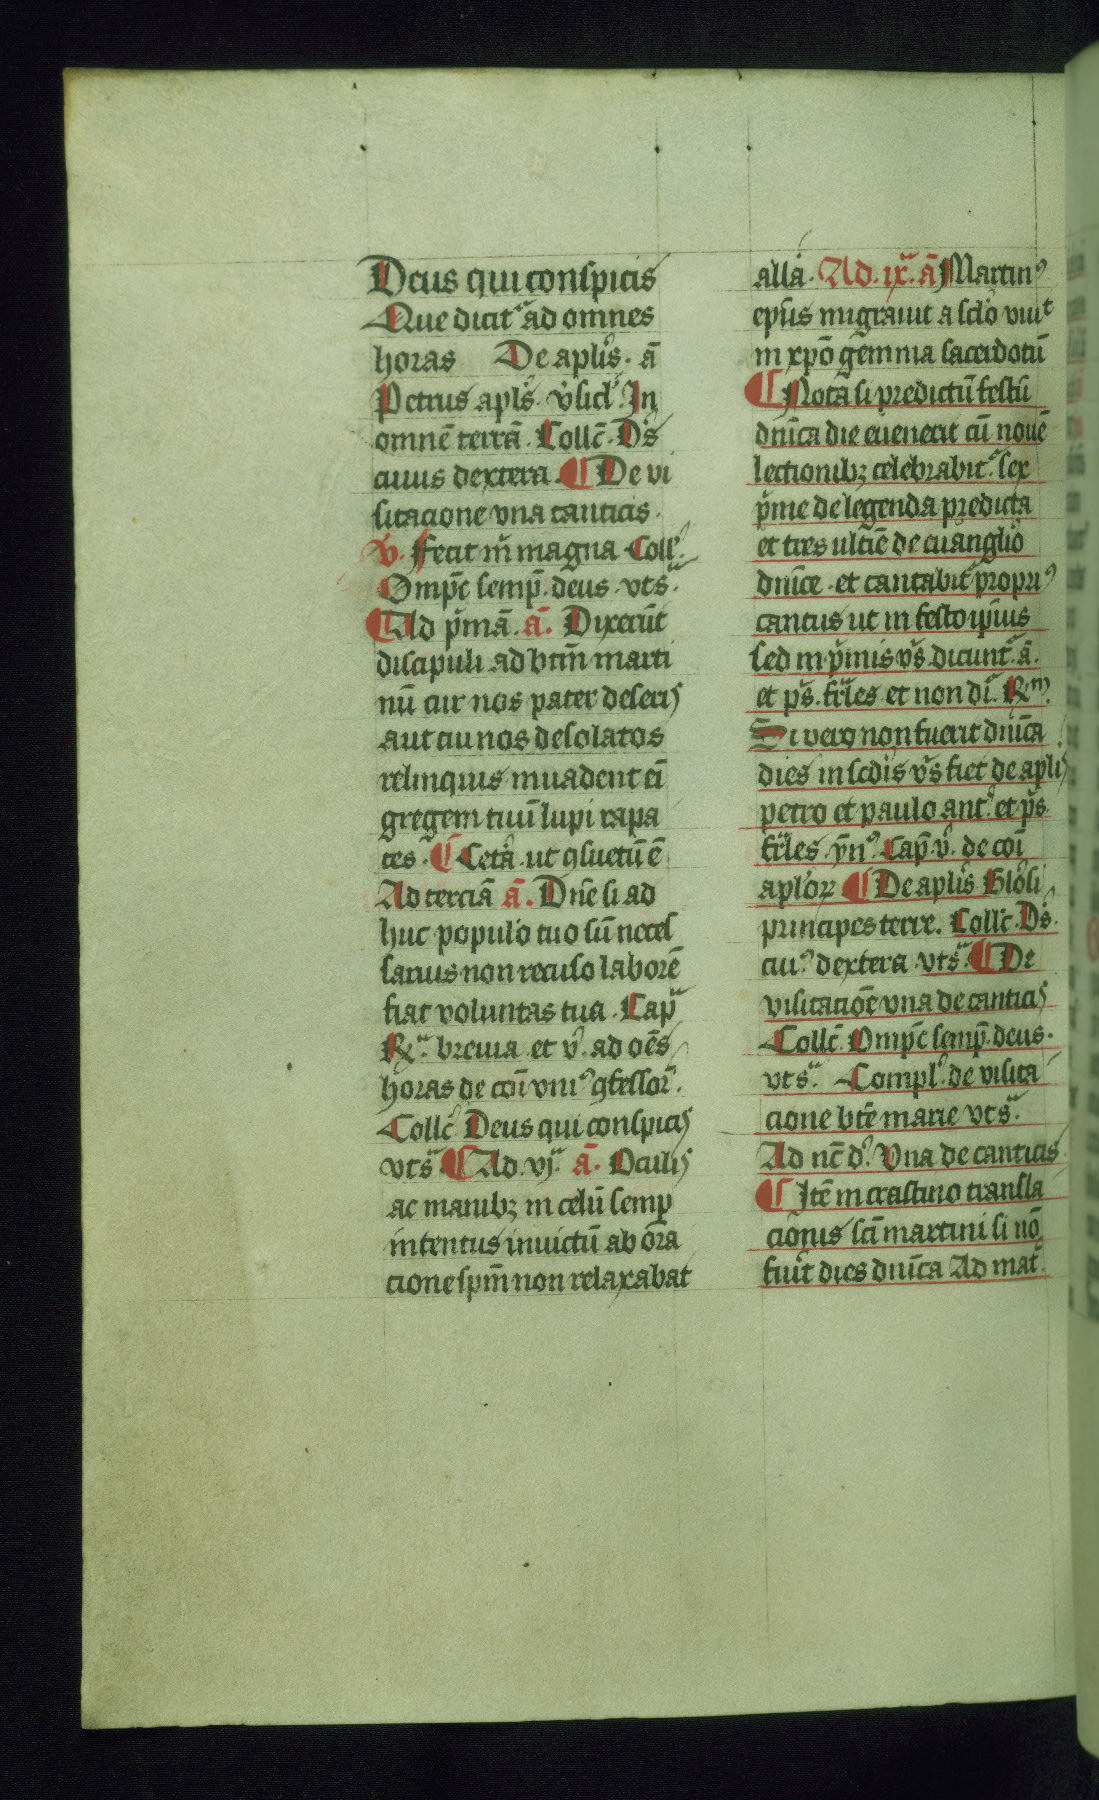 Deus qui conspicis
Que dicit᷑ ad omnes
horas De apl̄is · ā
Petrus apl̄s · v̓sicl᷑ · In
omnē terrā · Collc̄ · D̓s
cuius dextera · ¶ De vi
sitacione vna canticis ·
V̓ · Fecit m̄ magna Coll᷑
Omp̄c semp̄ · deus · vts᷑ ·
¶ Ad p̓mā · ā · Dixerūt
discipuli ad btm̄ marti
nū cur nos pater deseris
aut cui nos desolatos
relinquis inuadent eī
gregem tuū lupi rapa
ces · ¶ Cetā ut ꝯsuetū ē
Ad terciā ā · Dn̄e si ad
huc populo tuo sū neces
sarius non recuso laborē
fiat voluntas tua · Cap᷑
R᷑ · breuia et v̓ · ad oēs
horas de coī vniꝰ ꝯfessor᷑ ·
Collc̄ Deus qui conspicis
vts᷑ ¶ Ad · vj᷑ · ā · Oculis
ac manibꝫ in celū semp̄
intentus inuictū ab ōra
cione spm̄ non relaxabat
allā · Ad · ix᷑ · ā Martinꝰ
ep̄us migrauit a sclo̓ viuit
in xp̄o gemma sacerdotū
¶ Nota si predictū festū
dnīca die euenerit cū nouē
lectionibꝫ celebrabit᷑ · sex
p̓me de legenda predicta
et tres ultīe de euangl̄io
dnīce · et cantabit᷑ propriꝰ
cantus ut in festo ip̄ius
sed in p̓mis v̓s · dicunt᷑ · ā ·
et p̄s · fr̄les et non dī · Rm̄ ·
Si vero non fuerit dnīca
dies in scdīs v̓s fiet de apl̄is
petro et paulo ant᷑ · et p̄s ·
fr̄les · ẏnꝰ · Cap̄ v̓ · de coī
apl̓oꝝ ¶ De apl̄is Glo̓si
principes terre · Collc̄ · D̓s ·
cuiꝰ dextera · vts᷑ · ¶ De
visitaciōe vna de canticis
Collc̄ · Omp̄c semp̄ · deus ·
vts᷑ · Compl᷑ · de visita
cione btē marie vts᷑ ·
Ad nc̄ d᷑ · Vna de canticis
¶ Itē in crastino transla
cionis scī martini si nō
fuīt dies dnīca Ad mat᷑ ·